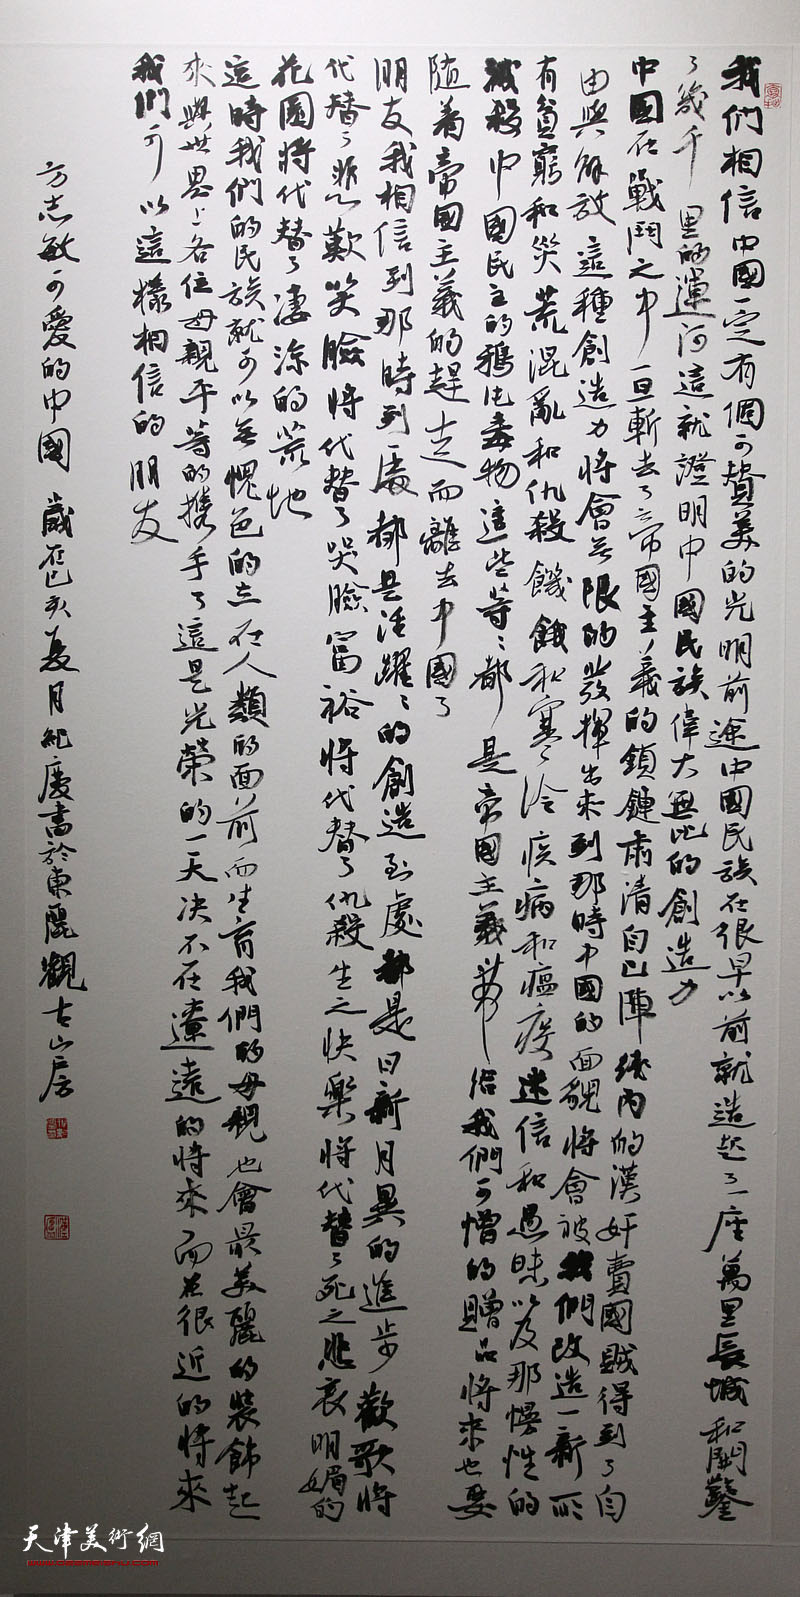 我們相信中國一定有個可贊美的光明前途中國民族在很早以前就造起了一座萬里長城和開鑿
了幾千里的運河這就證明中國民族偉大無比的創造力
中國在戰鬥之中一旦斬去了帝國主義的鎖鏈肅清自己陣線內的漢奸賣國賊得到了自
由與解放這種創造力將會無限的發揮出來到那時中國的面貌將會被我們改造一新所
有貧窮和災荒混亂和仇殺饑餓和寒冷疾病和瘟疫迷信和愚昧以及那慢性的
滅殺中國民主的鴉片毒物這些等等都是帝國主義帶給我們可憎的贈品將來也要
隨着帝國主義的趕走而離去中國了
朋友我相信到那時到處都是活躍躍的創造到處都是日新月異的進步歡歌將
代替了悲歎笑臉將代替了哭臉富裕將代替了仇殺生之快樂將代替了死之悲哀明媚的
花園將代替了淒涼的荒地
這時我們的民族就可以無愧色的立在人類的面前而生育我們的母親也會最美麗的裝飾起
來與世界上各位母親平等的攜手了這是光榮的一天決不在遼遠的將來而在很近的將來
我們可以這樣相信的朋友
方志敏可愛的中國 歲在己亥夏月紀慶書於東麗觀古山房
天津美術網